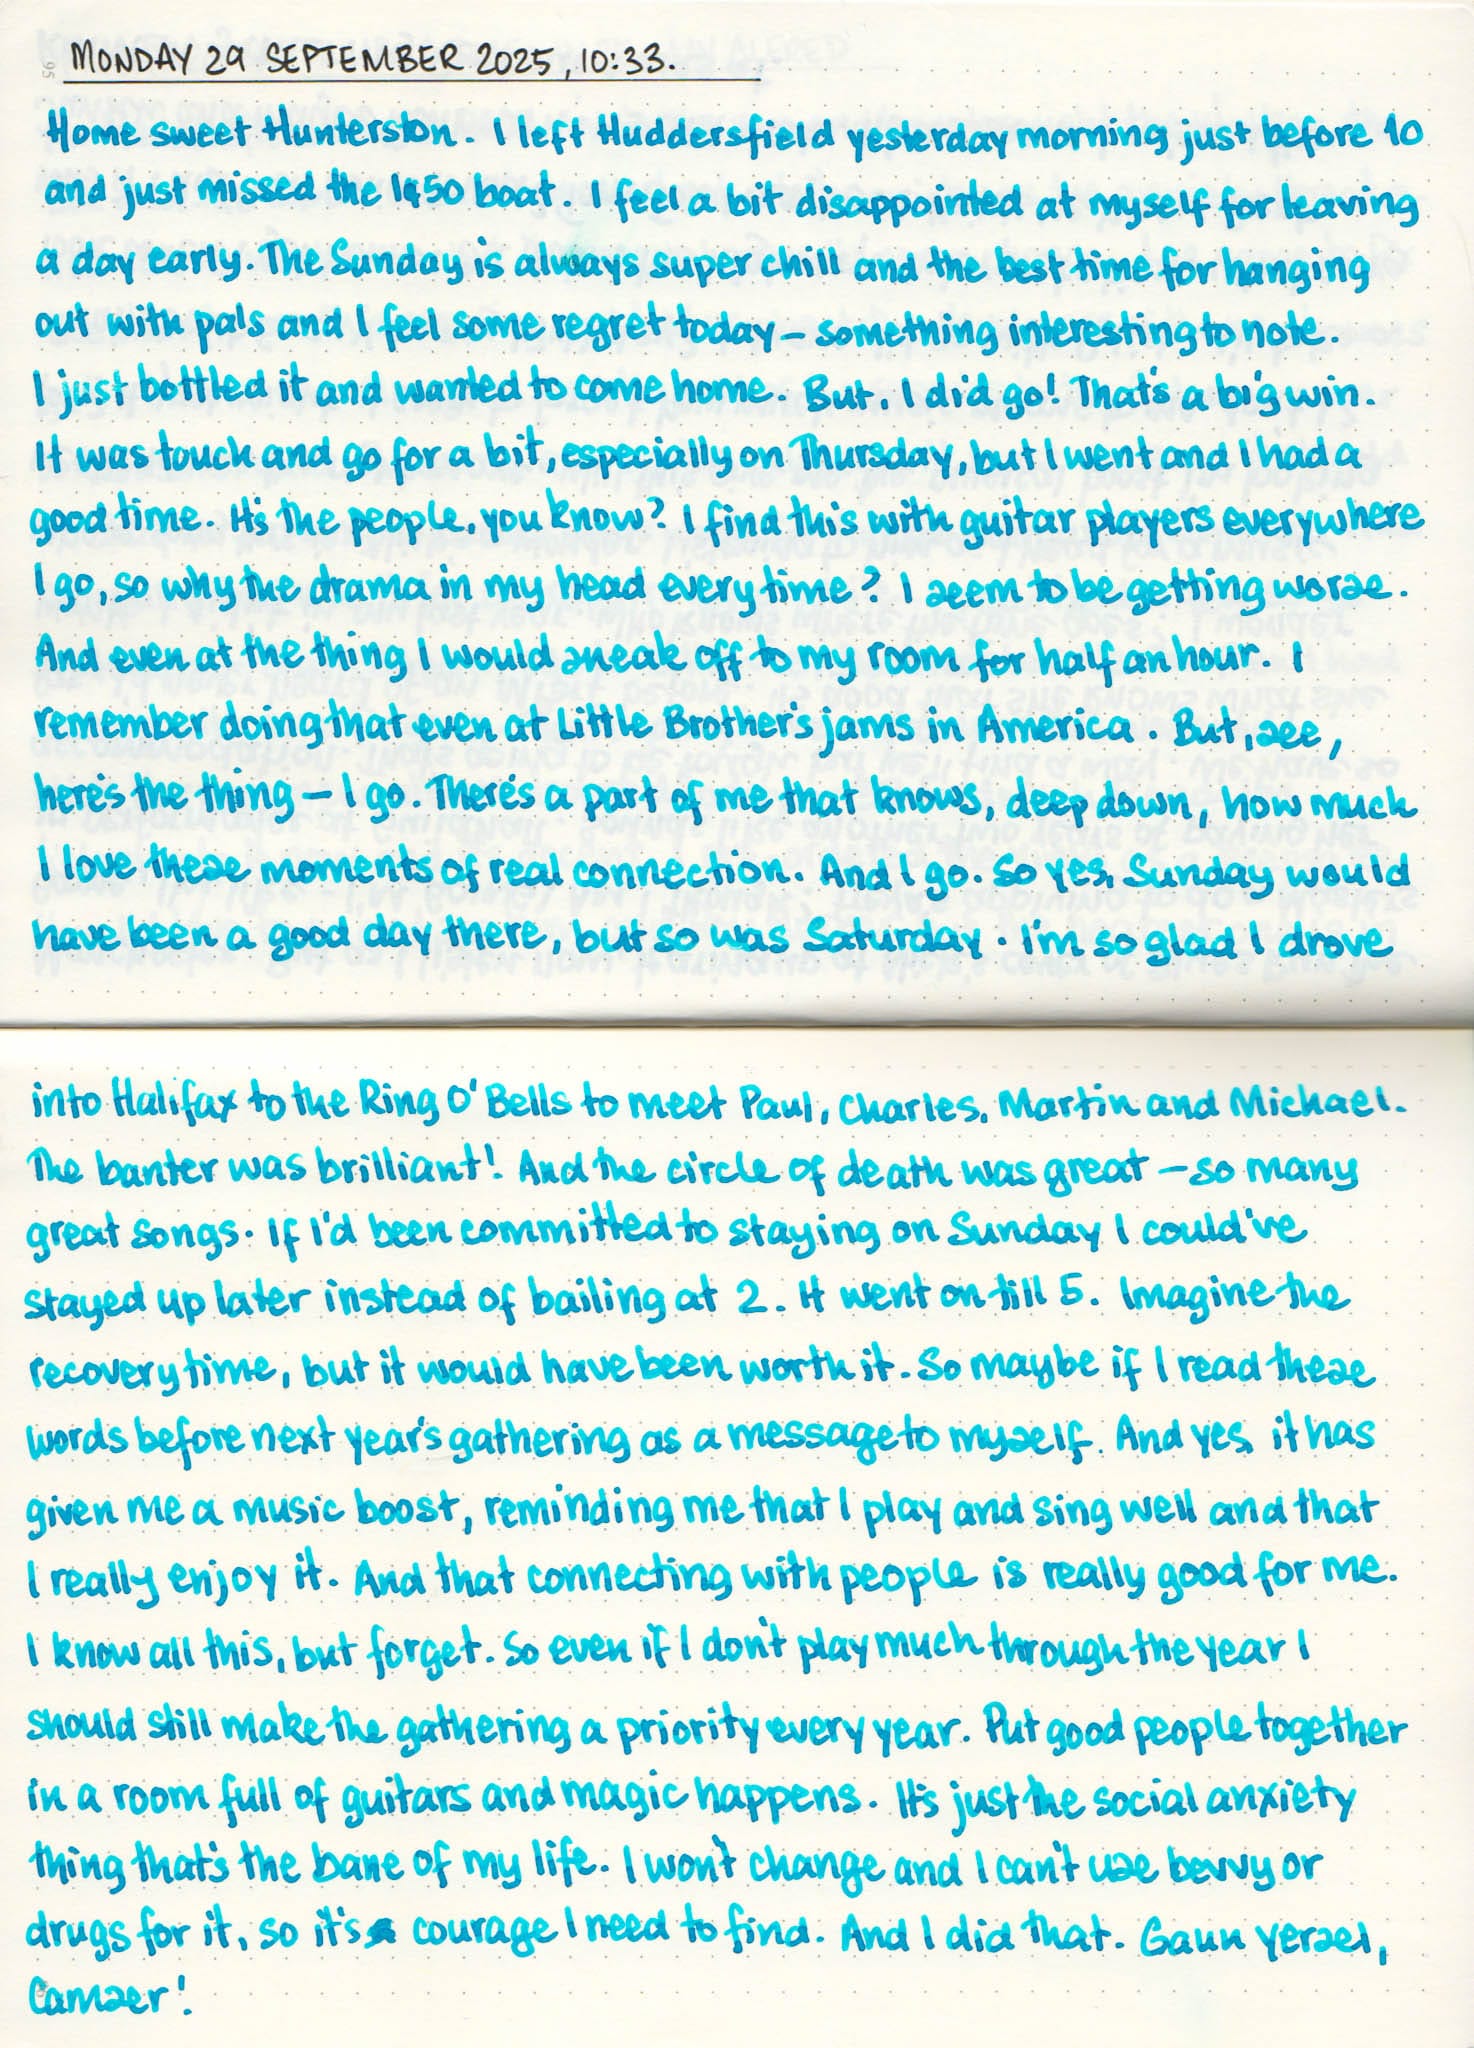 MONDAY 29 SEPTEMBER 2025, 10:33.
Home sweet Hunterston. I left Huddersfield yesterday morning just before 10
and just missed the 1450 boat. I feel a bit disappointed at myself for leaving
a day early. The Sunday is always super chill and the best time for hanging
out with pals and I feel some regret today – something interesting to note.
I just bottled it and wanted to come home. But, I did go! That's a big win.
It was touch and go for a bit, especially on Thursday, but I went and I had a
good time. It's the people, you know? I find this with guitar players everywhere
I go, so why the drama in my head every time? I seem to be getting worse.
And even at the thing I would sneak off to my room for half an hour. I
remember doing that even at Little Brother's jams in America. But, see,
here's the thing – I go. There's a part of me that knows, deep down, how much
I love these moments of real connection. And I go. So yes, Sunday would
have been a good day there, but so was Saturday. I'm so glad I drove
into Halifax to the Ring O' Bells to meet Paul, Charles, Martin and Michael.
The banter was brilliant! And the circle of death was great – so many
great songs. If I'd been committed to staying on Sunday I could've
stayed up later instead of bailing at 2. It went on till 5. Imagine the
recovery time, but it would have been worth it. So maybe if I read these
words before next year's gathering as a message to myself. And yes, it has
given me a music boost, reminding me that I play and sing well and that
I really enjoy it. And that connecting with people is really good for me.
I know all this, but forget. So even if I don't play much through the year I
should still make the gathering a priority every year. Put good people together
in a room full of guitars and magic happens. It's just the social anxiety
thing that's the bane of my life. I won't change and I can't use bevvy or
drugs for it, so it's courage I need to find. And I did that. Gaun yersel,
Camser!